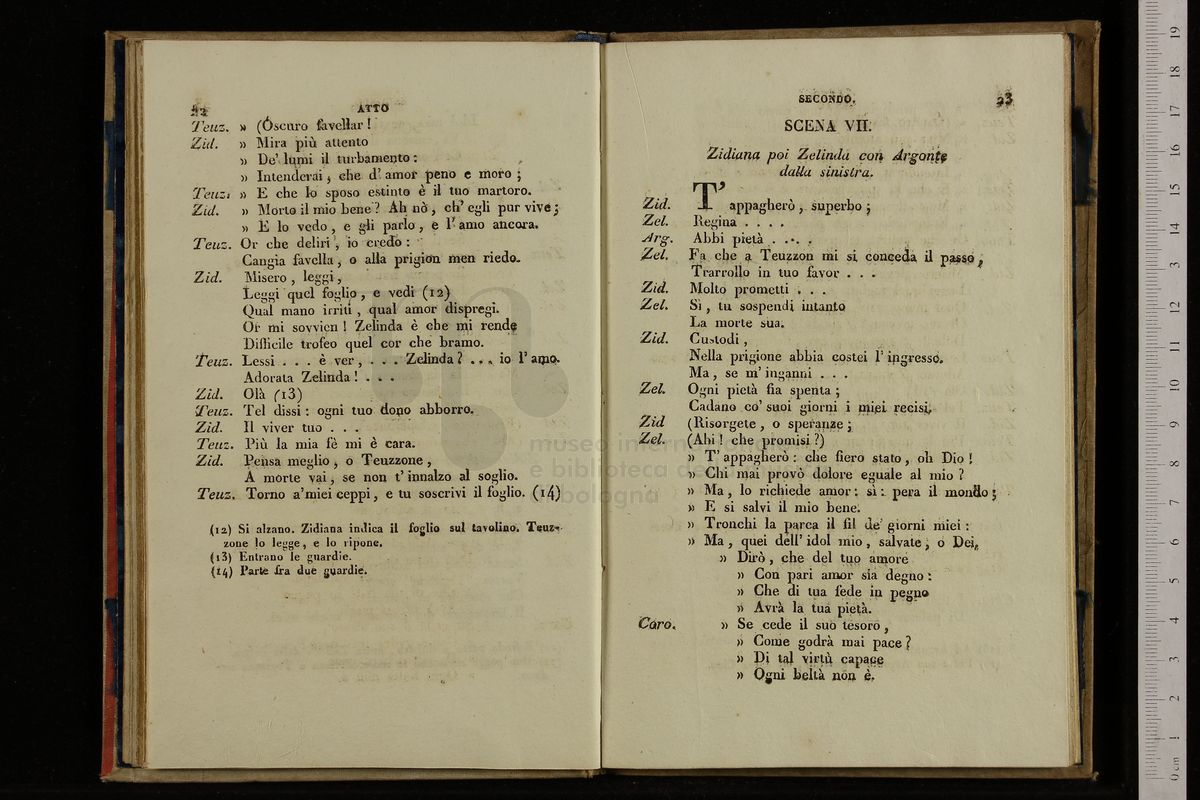 22
ATTO
Teuz. » (Oscuro favellar!
Zid. » Mira più attento
» De' lumi il turbamento:
» Intenderai, che d' amor peno e moro;
Teuz. » E che lo sposo estinto è il tuo martoro.
Zid. » Morto il mio bene? Ah nò, ch' egli pur vive;
» E lo vedo, e gli parlo, e l' amo ancora.
Teuz. Or che deliri, io credo:
Cangia favella, o alla prigion men riedo.
Zid. Misero, leggi,
Leggi quel foglio, e vedi (12)
Qual mano irriti, qual amor dispregi.
Or mi sovvien! Zelinda è che mi rende
Difficile trofeo quel cor che bramo.
Teuz. Lessi . . . è ver, . . . Zelinda? . . . io l' amo.
Adorata Zelinda! . . .
Zid. Olà (13)
Teuz. Tel dissi: ogni tuo dono abborro.
Zid. Il viver tuo . . .
Teuz. Più la mia fè mi è cara.
Zid. Pensa meglio, o Teuzzone,
A morte vai, se non t' innalzo al soglio.
Teuz. Torno a' miei ceppi, e tu soscrivi il foglio. (14)
(12) Si alzano. Zidiana indica il foglio sul tavolino. Teuz-
zone lo legge, e lo ripone.
(13) Entrano le guardie.
(14) Parte fra due guardie.
SECONDO.
23
SCENA VII.
Zidiana poi Zelinda con Argonte
dalla sinistra.
Zid. T' appagherò, superbo;
Zel. Regina . . . .
Arg. Abbi pietà . . . .
Zel. Fa che a Teuzzon mi si conceda il passo,
Trarrollo in tuo favor . . .
Zid. Molto prometti . . .
Zel. Sì, tu sospendi intanto
La morte sua.
Zid. Custodi,
Nella prigione abbia costei l' ingresso.
Ma, se m' inganni . . .
Zel. Ogni pietà fia spenta;
Cadano co' suoi giorni i miei recisi.
Zid (Risorgete, o speranze;
Zel. (Ahi! che promisi?)
» T' appagherò: che fiero stato, oh Dio!
» Chi mai provò dolore eguale al mio?
» Ma, lo richiede amor: sì: pera il mondo;
» E si salvi il mio bene.
» Tronchi la parca il fil de' giorni miei:
» Ma, quei dell' idol mio, salvate, o Dei,
» Dirò, che del tuo amore
» Con pari amor sia degno:
» Che di tua fede in pegno
» Avrà la tua pietà.
Coro. » Se cede il suo tesoro,
» Come godrà mai pace?
» Di tal virtù capace
» Ogni beltà non è.
museo inter
e biblioteca de
bologna
0 cm 1 2 3 4 5 6 7 8 9 10 11 12 13 14 15 16 17 18 19